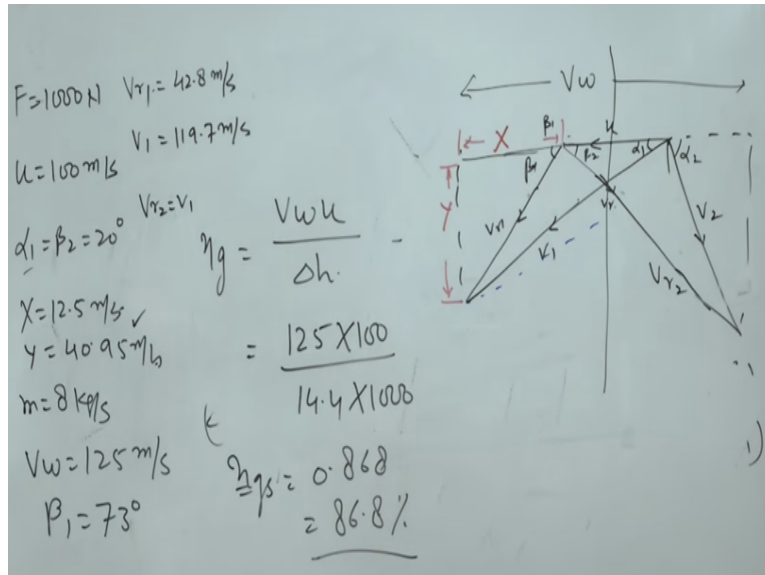 F=1000N Vr1 = 42.8 m/s
V1 = 119.7 m/s
U=100 m/s
Vr2=V1
α1=β2=20°
X=12.5 m/s ✓
Y=40.95 m/s
m=8 kg/s
Vw=125 m/s
β1=73°
ηg = Vwu / Δh.
= 125X100 / 14.4X1000
ηgs = 0.868
= 86.8%
Vw
X
β1
u
β2
α1
α2
Y
Vr1
V1
V2
Vr2